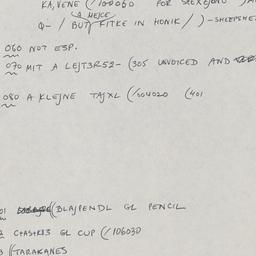 KA, VENE (/100060 FOR
LA HEJCE
Q- / BUT FITKE IN HONIK / ) - SHEEPSHE
060 NOT ESP.
070 MIT A LEJT3R52- (305 UNVOICED AND
080 A KLEJNE TAJXL (/504020 (401
01 (BLAJPENDL GL PENCIL
CFASTRIS GL CUP (/106030
(TARAKANES